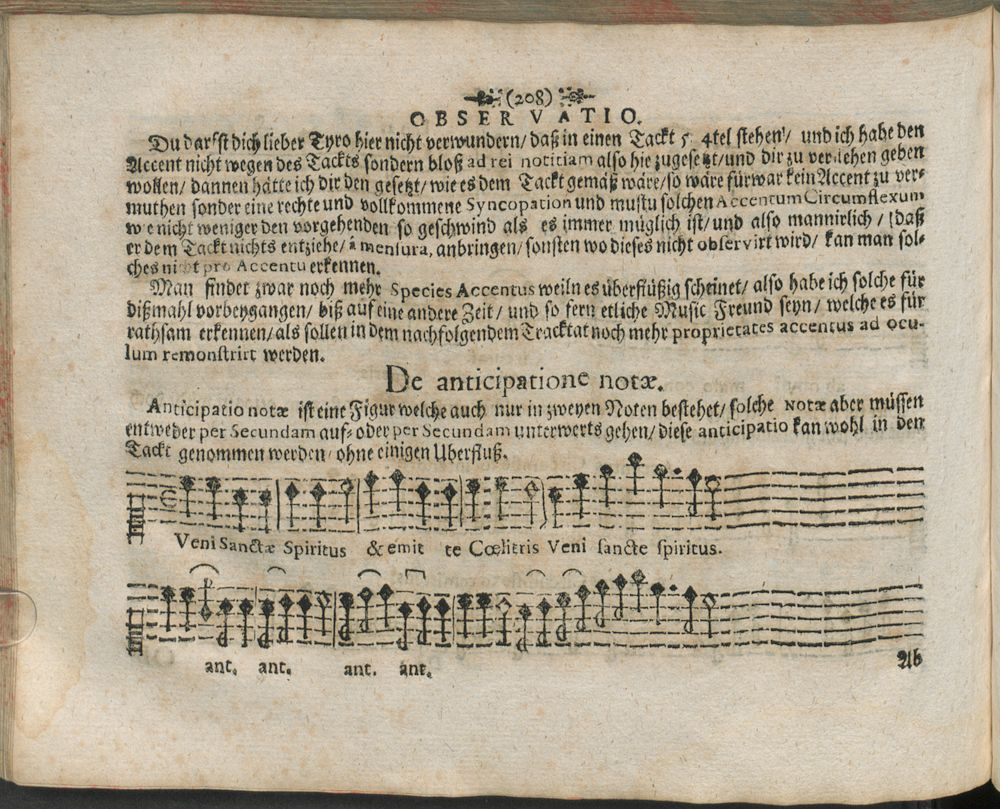 (208)
OBSERVATIO.
Du darffst dich lieber Tyro hier nicht verwundern/ daß in einen Tackt 5. 4tel stehen/ und ich habe den
Accent nicht wegen des Tackts sondern bloß ad rei notitiam also hie zugesetzt/ und dir zu verstehen geben
wollen/ dannen hätte ich dir den gesetzt/ wie es dem Tackt gemäß wäre/ so wäre fürwar kein Accent zu ver-
muthen sonder eine rechte und vollkommene Syncopation und mustu solchen Accentum Circumflexum
wie nicht weniger den vorgehenden so geschwind als es immer müglich ist/ und also mannirlich/ daß
er dem Tackt nichts entziehe/ â mensura, anbringen/ sonsten wo dieses nicht observirt wird/ kan man sol-
ches nicht pro Accentu erkennen.
Man findet zwar noch mehr Species Accentus weiln es überflüßig scheinet/ also habe ich solche für
dißmahl vorbeygangen/ biß auf eine andere Zeit/ und so fern etliche Music Freund seyn/ welche es für
rathsam erkennen/ als sollen in dem nachfolgendem Tracktat noch mehr proprietates accentus ad ocu-
lum remonstrirt werden.
De anticipatione notæ.
Anticipatio notæ ist eine Figur welche auch nur in zweyen Noten bestehet/ solche Notæ aber müssen
entweder per Secundam auf- oder per Secundam unterwerts gehen/ diese anticipatio kan wohl in den
Tackt genommen werden/ ohne einigen Uberfluß.
Veni Sanctæ Spiritus & emit te Cœlitris Veni sancte spiritus.
ant. ant. ant. ant.
Ab